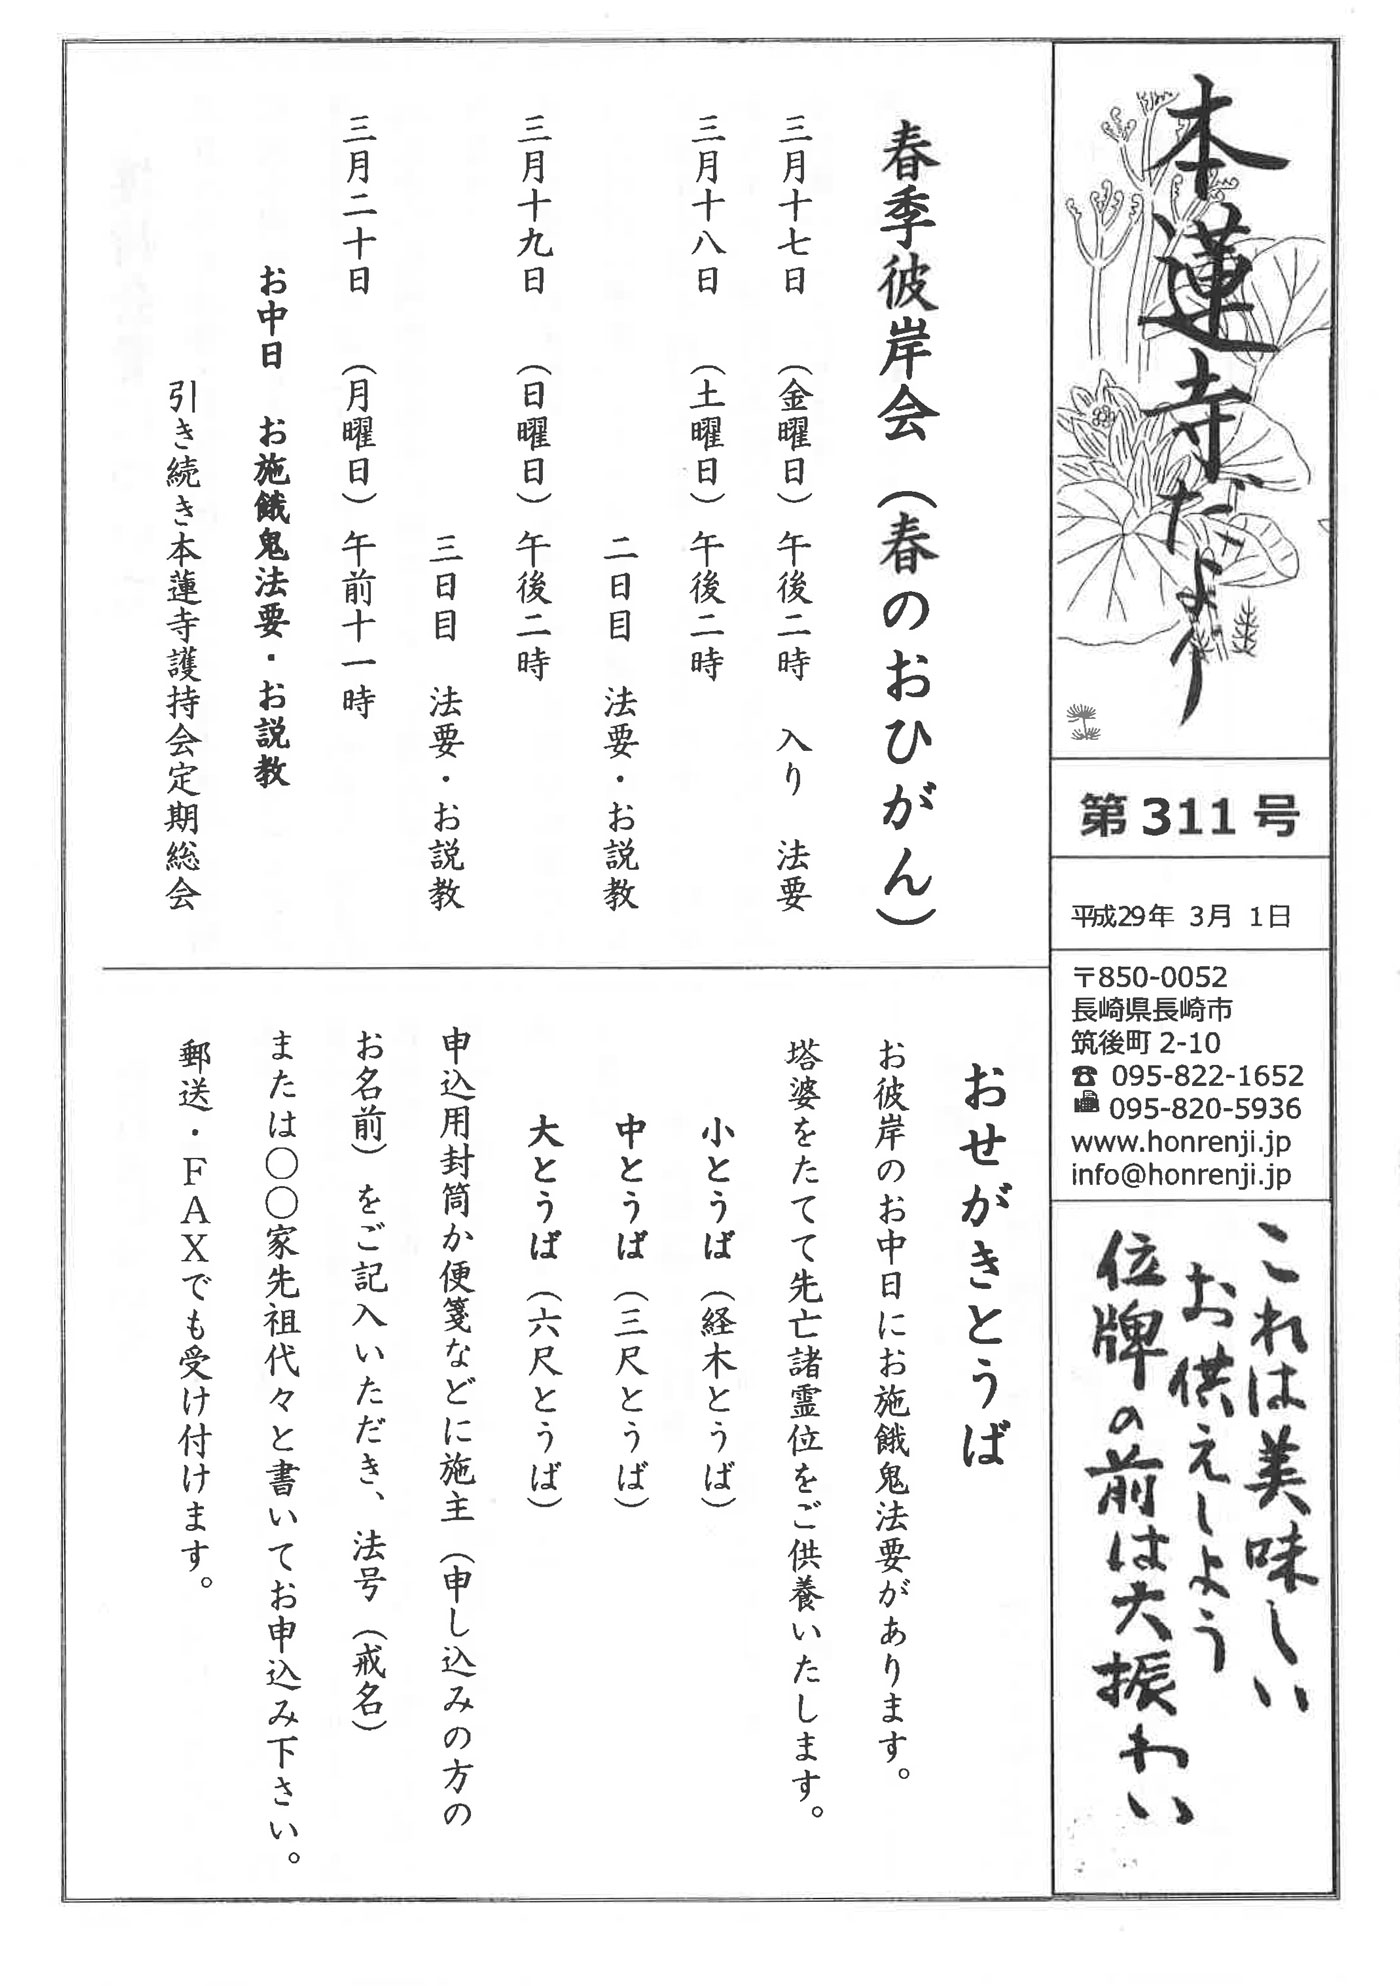 本蓮寺だより
第311号
平成29年 3月 1日
〒850-0052
長崎県長崎市
筑後町 2-10
☎ 095-822-1652
📠 095-820-5936
www.honrenji.jp
info@honrenji.jp
これは美味しい
お供えしよう
位牌の前は大振わい
春季彼岸会（春のおひがん）
三月十七日　（金曜日）午後二時　入り　法要
三月十八日　（土曜日）午後二時
二日目　法要・お説教
三月十九日　（日曜日）午後二時
三日目　法要・お説教
三月二十日　（月曜日）午前十一時
お中日　お施餓鬼法要・お説教
引き続き本蓮寺護持会定期総会
おせがきとうば
お彼岸のお中日にお施餓鬼法要があります。
塔婆をたてて先亡諸霊位をご供養いたします。
小とうば（経木とうば）
中とうば（三尺とうば）
大とうば（六尺とうば）
申込用封筒か便箋などに施主（申し込みの方の
お名前）をご記入いただき、法号（戒名）
または〇〇家先祖代々と書いてお申込み下さい。
郵送・ＦＡＸでも受け付けます。